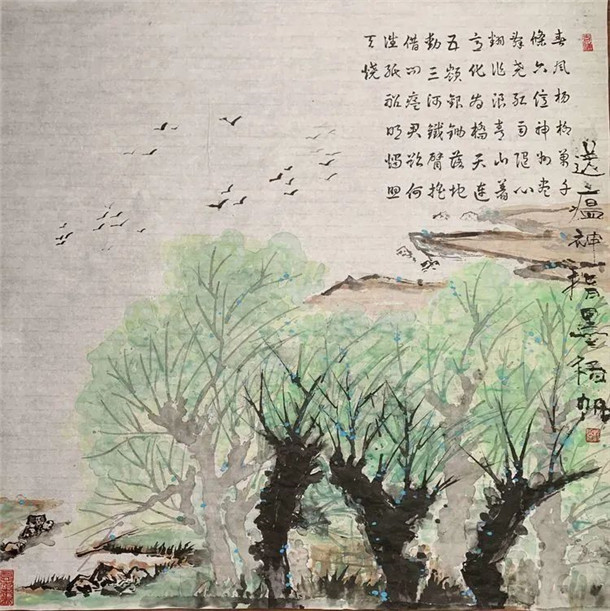 春風杨柳萬千
條六億神州尽
舜尧红雨随心
翻作浪青山着
意化为橋天连
五嶺银锄落地
動三河鐵臂摇
借问瘟君欲何
往纸船明烛照
天烧
送瘟神指墨